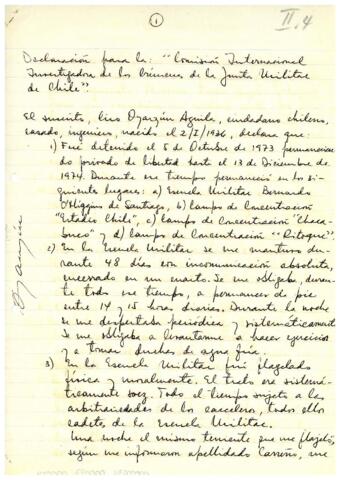 1
II.4
Declaración para la: "Comisión Internacional
Investigadora de los Crímenes de la Junta Militar
de Chile".
El suscrito, Lino Oyarzún Aguila, ciudadano chileno,
casado, ingeniero, nacido el 2/I/1926, declara que:
1) Fue detenido el 5 de Octubre de 1973 permaneciendo
privado de libertad hasta el 13 de Diciembre de
1974. Durante ese tiempo permaneció en los si-
guientes lugares: a) Escuela Militar Bernardo
O'Higgins de Santiago, b) Campo de Concentración
"Estadio Chile", c) Campo de Concentración "Chaca-
buco" y d) Campo de Concentración "Ritoque".
2) En la Escuela Militar se me mantuvo du-
rante 48 días con incomunicación absoluta,
encerrado en un cuarto. Se me obligaba, duran-
te todo ese tiempo, a permanecer de pie
entre 14 y 15 horas diarias. Durante la noche
se me despertaba periódica y sistemáticamente.
Se me obligaba a levantarme a hacer ejercicios
y a tomar duchas de agua fría.
3) En la Escuela Militar fui flagelado
física y moralmente. El trato era sistemá-
ticamente soez. Todo el tiempo sujeto a las
arbitrariedades de los carceleros, todos ellos
cadetes de la Escuela Militar.
Una noche el mismo teniente que me flageló,
según me informaron apellidado Carreño, me
Oyarzún